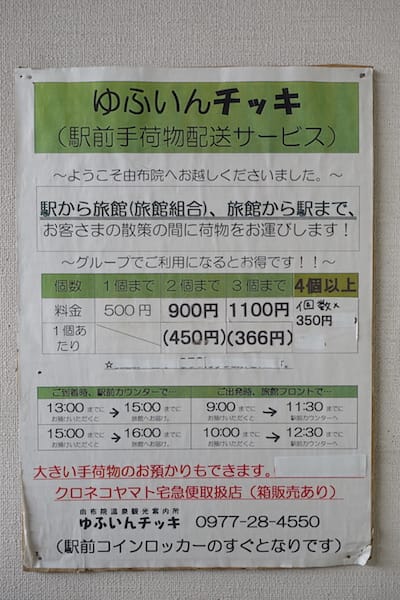 ゆふいんチッキ
(駅前手荷物配送サービス)
～ようこそ由布院へお越しくださいました。～
駅から旅館(旅館組合)、旅館から駅まで、
お客さまの散策の間に荷物をお運びします！
～グループでご利用になるとお得です！！～
個数 1個まで 2個まで 3個まで 4個以上
料金 500円 900円 1100円 個数×350円
1個あたり (450円) (366円)
ご到着時、駅前カウンターで… ご出発時、旅館フロントで…
13:00 までにお預けいただくと → 15:00 までに旅館へお届け。 9:00 までにお預けいただくと → 11:30 までに駅前カウンターへ
15:00 までにお預けいただくと → 16:00 までに旅館へお届け。 10:00 までにお預けいただくと → 12:30 までに駅前カウンターへ
大きい手荷物のお預かりもできます。
クロネコヤマト宅急便取扱店（箱販売あり）
由布院温泉観光案内所
ゆふいんチッキ 0977-28-4550
(駅前コインロッカーのすぐとなりです)